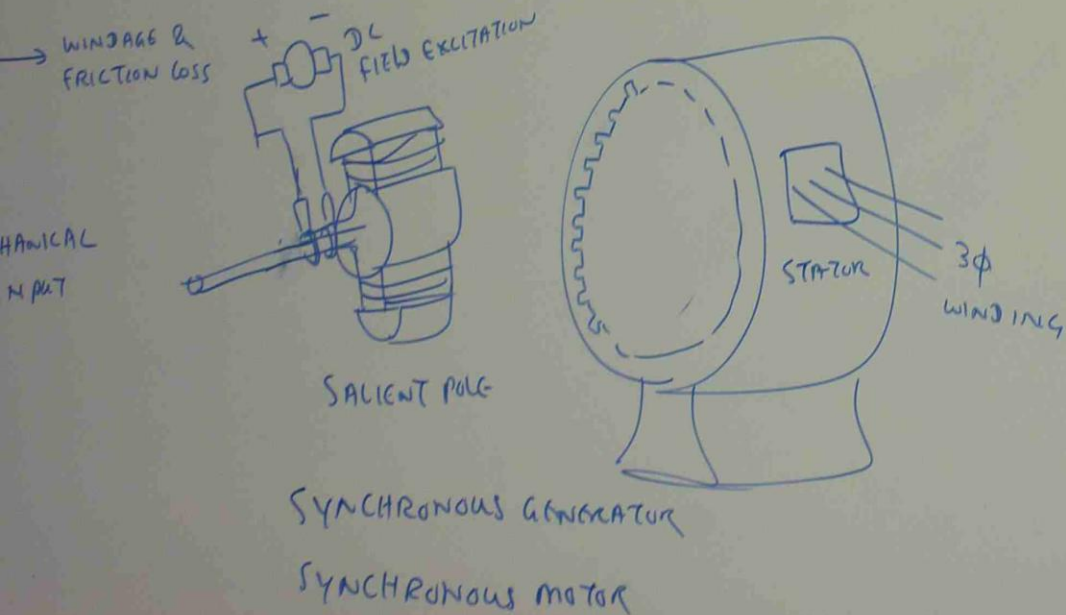 → WINDAGE &
FRICTION LOSS
+ −
DC
FIELD EXCITATION
HANICAL
NPUT
SALIENT POLE
STATOR
3φ
WINDING
SYNCHRONOUS GENERATOR
SYNCHRONOUS MOTOR